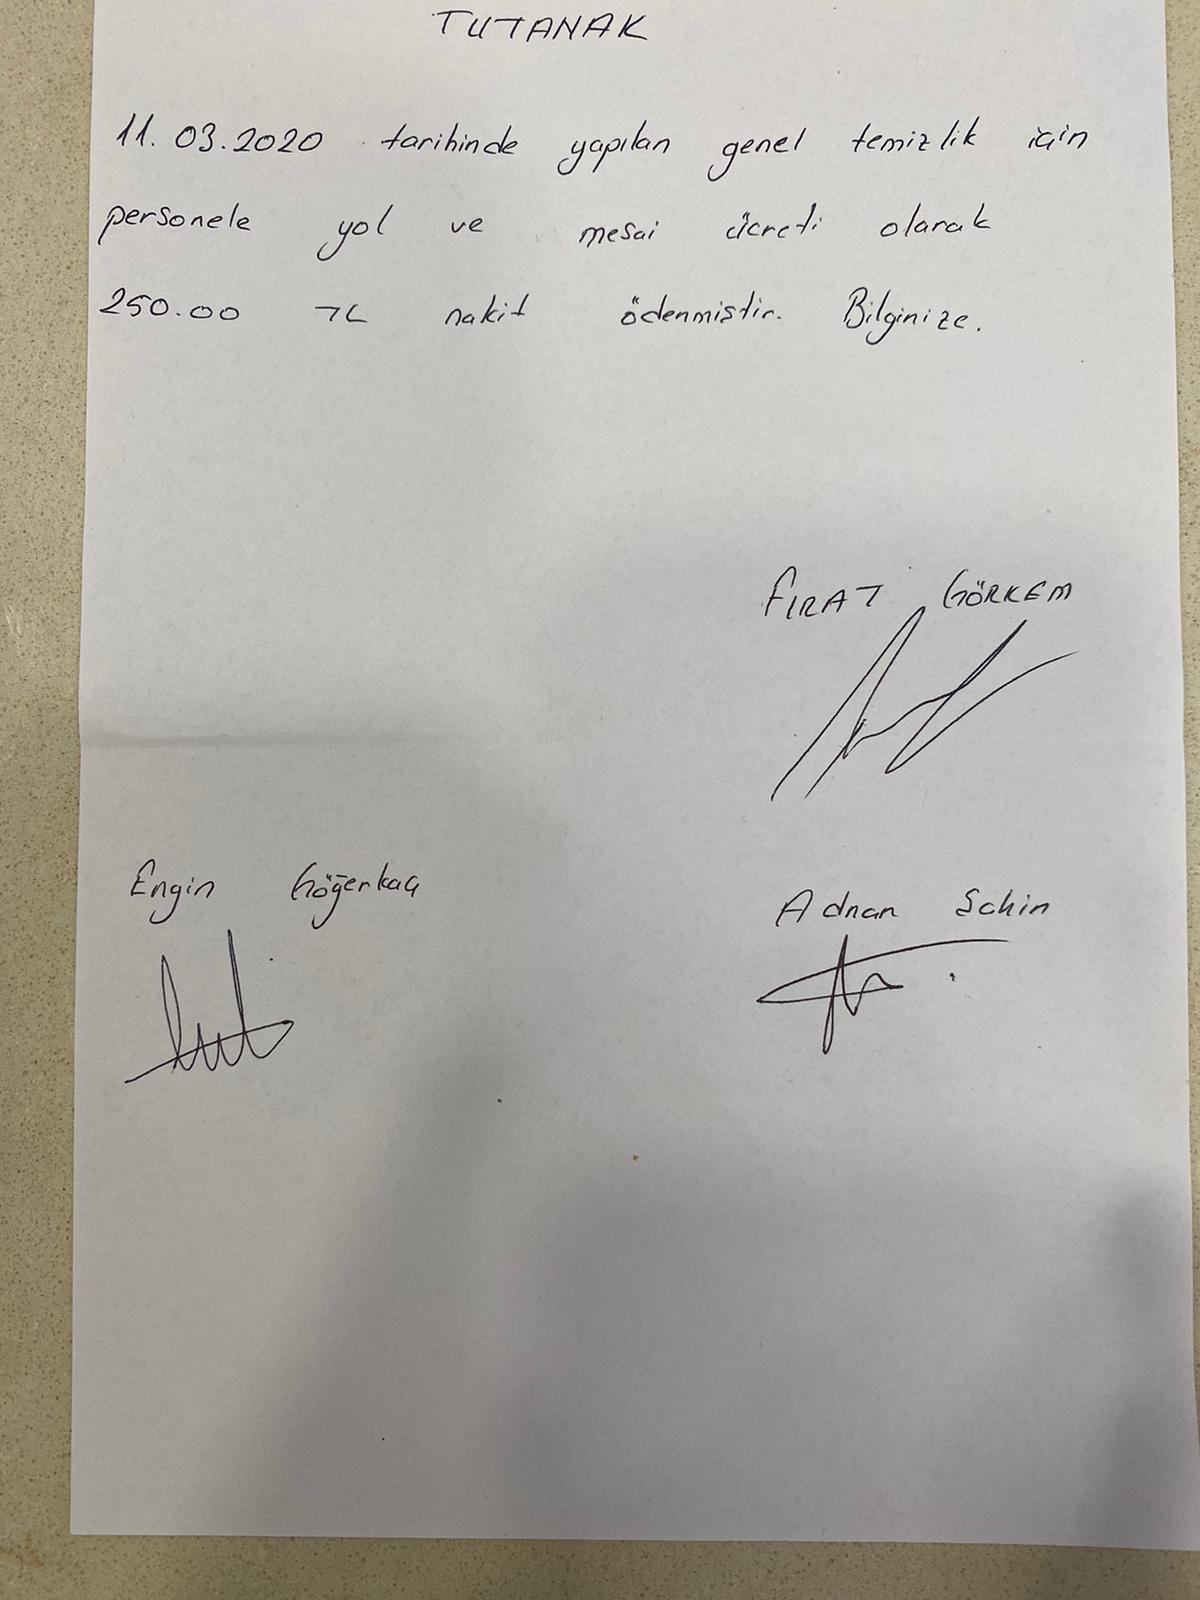 TUTANAK
11.03.2020 tarihinde yapılan genel temizlik için
personele yol ve mesai ücreti olarak
250.00 TL nakit ödenmiştir. Bilginize.
FIRAT GÖRKEM
Engin Göğerkaç
Adnan Şahin